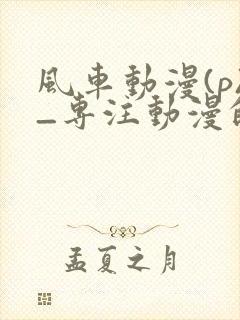 風車動漫(p
—專注動漫
孟夏之月